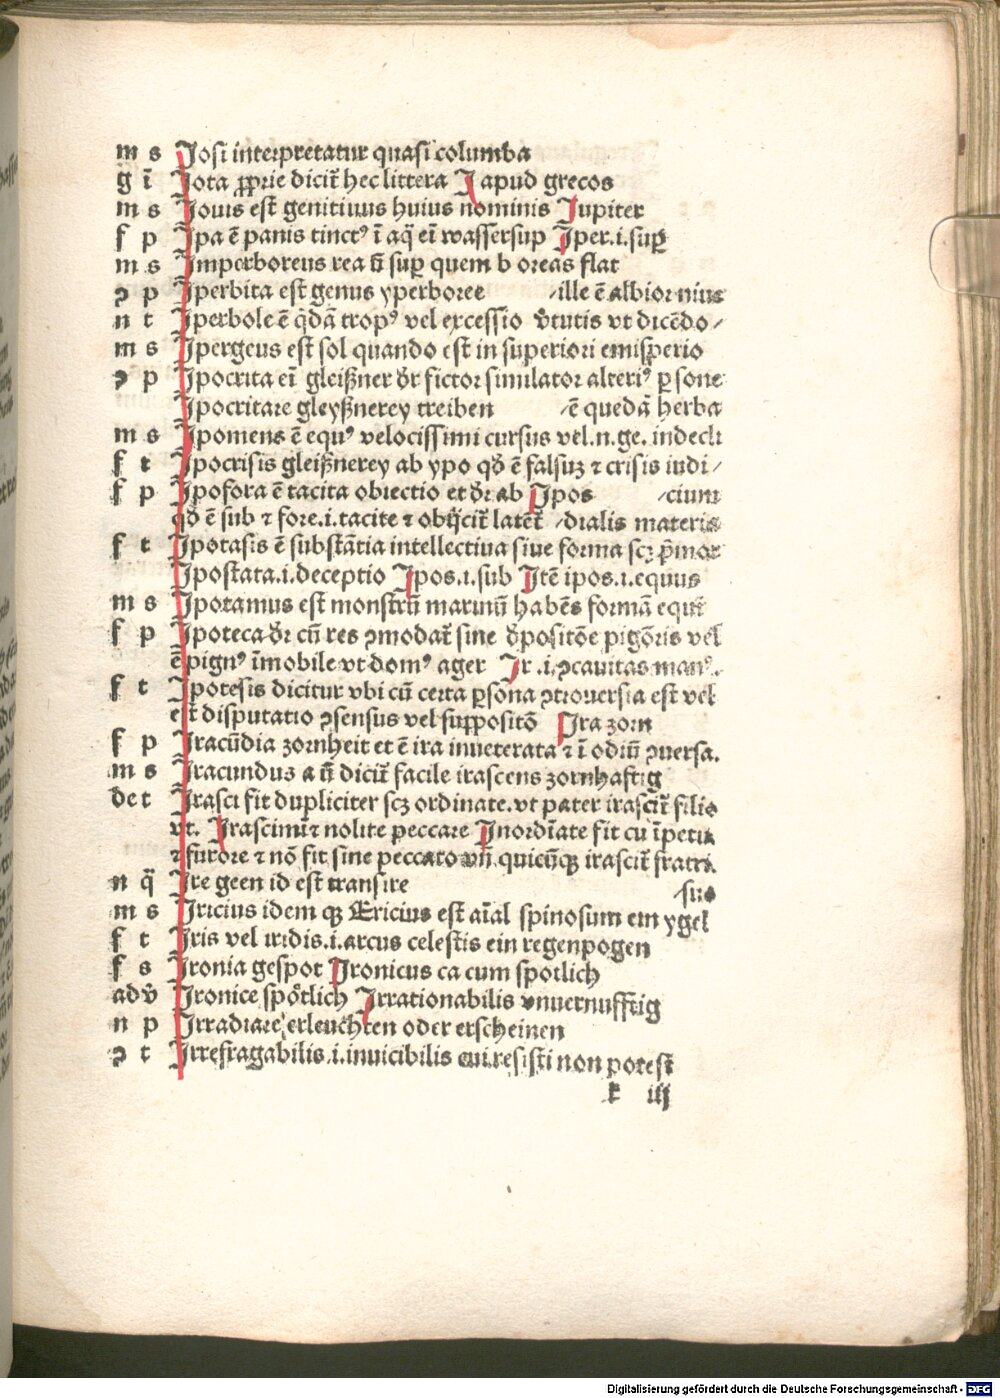 m s Josi interpretatur quasi columba
g ī Jota ꝓprie dicit̄ hec littera J apud grecos
m s Jouis est genitiuus huius nominis Jupiter
f p Jpa ē panis tinctꝰ ī aq̄ eī wassersup Jper.i.suꝑ
m s Jmperboreus rea ū suꝑ quem boreas flat
ꝯ p Jperbita est genus yperboree /ille ē albior nius
n t Jperbole ē q̄dā tropꝰ vel excessio v̄tutis vt dicēdo/
m s Jpergeus est sol quando est in superiori emisperio
ꝯ p Jpocrita eī gleißner d̄r fictor simulator alteriꝰ ꝑsone
Jpocritare gleyßnerey treiben /ē quedā herba
m s Jpomens ē equꝰ velocissimi cursus vel.n.ge. indecli
f t Jpocrisis gleißnerey ab ypo qd̄ ē falsuꝫ ⁊ crisis iudi/
f p Jpofora ē tacita obiectio et d̄r ab Jpos /cium
qd̄ ē sub ⁊ fore.i.tacite ⁊ obijcit̄ latēt̄ /dialis materis
f t Jpotasis ē substātia intellectiua siue forma scꝫ p̄mor
Jpostata.i.deceptio Jpos.i.sub Jtē ipos.i.equus
m s Jpotamus est monstrū marinū habēs formā equi
f p Jpoteca d̄r cū res ꝯmodat̄ sine d̄positōe pigōris vel
ē pignꝰ īmobile vt domꝰ ager Jr .i.ꝯcauitas manꝰ.
f t Jpotesis dicitur vbi cū certa ꝑsona ꝯtrouersia est vel
est disputatio ꝯsensus vel suppositō Jra zorn
f p Jracūdia zornheit et ē ira inueterata ⁊ ī odiū ꝯuersa.
m s Jracundus a ū dicit̄ facile irascens zornhafftig
de t Jrasci fit dupliciter scꝫ ordinate.vt pater irascit̄ filio
vt. Jrascimī ⁊ nolite peccare Jnordīate fit cū īpetu
⁊ furore ⁊ nō fit sine peccato vn̄ quicūqꝫ irascit̄ fratri
n q̄ Jre geen id est transire /suo
m s Jricius idem qꝫ Ericius est aīal spinosum ein ygel
f t Jris vel iridis.i.arcus celestis ein regenpogen
f s Jronia gespot Jronicus ca cum spotlich
adv̄ Jronice spötlich Jrrationabilis vnuernufftig
n p Jrradiare erleuchten oder erscheinen
ꝯ t Jrrefragabilis.i.inuicibilis cui resisti non potest
k iij
Digitalisierung gefördert durch die Deutsche Forschungsgemeinschaft - DFG